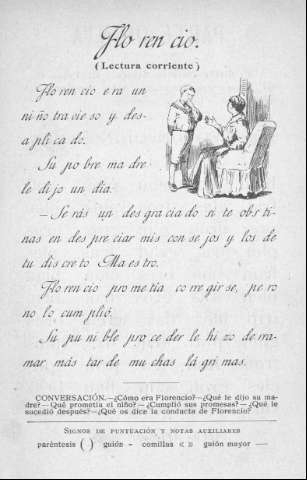 Flo ren cio.
( Lectura corriente )
Flo ren cio e ra un
ni ño tra vie so y des-
a pli ca do.
Su po bre ma dre
le di jo un día:
— Se rás un des gra cia do si te obs ti-
nas en des pre ciar mis con se jos y los de
tu dis cre to Ma es tro.
Flo ren cio pro me tía co rre gir se, pe ro
no lo cum plió.
Su pu ni ble pro ce der le hi zo de rra-
mar más tar de mu chas lá gri mas.
CONVERSACIÓN.—¿Cómo era Florencio?—¿Qué le dijo su ma-
dre?—Qué prometía el niño?—¿Cumplió sus promesas?—¿Qué le
sucedió después?—¿Qué os dice la conducta de Florencio?
SIGNOS DE PUNTUACIÓN Y NOTAS AUXILIARES
paréntesis ( ) guión - comillas « » guión mayor —